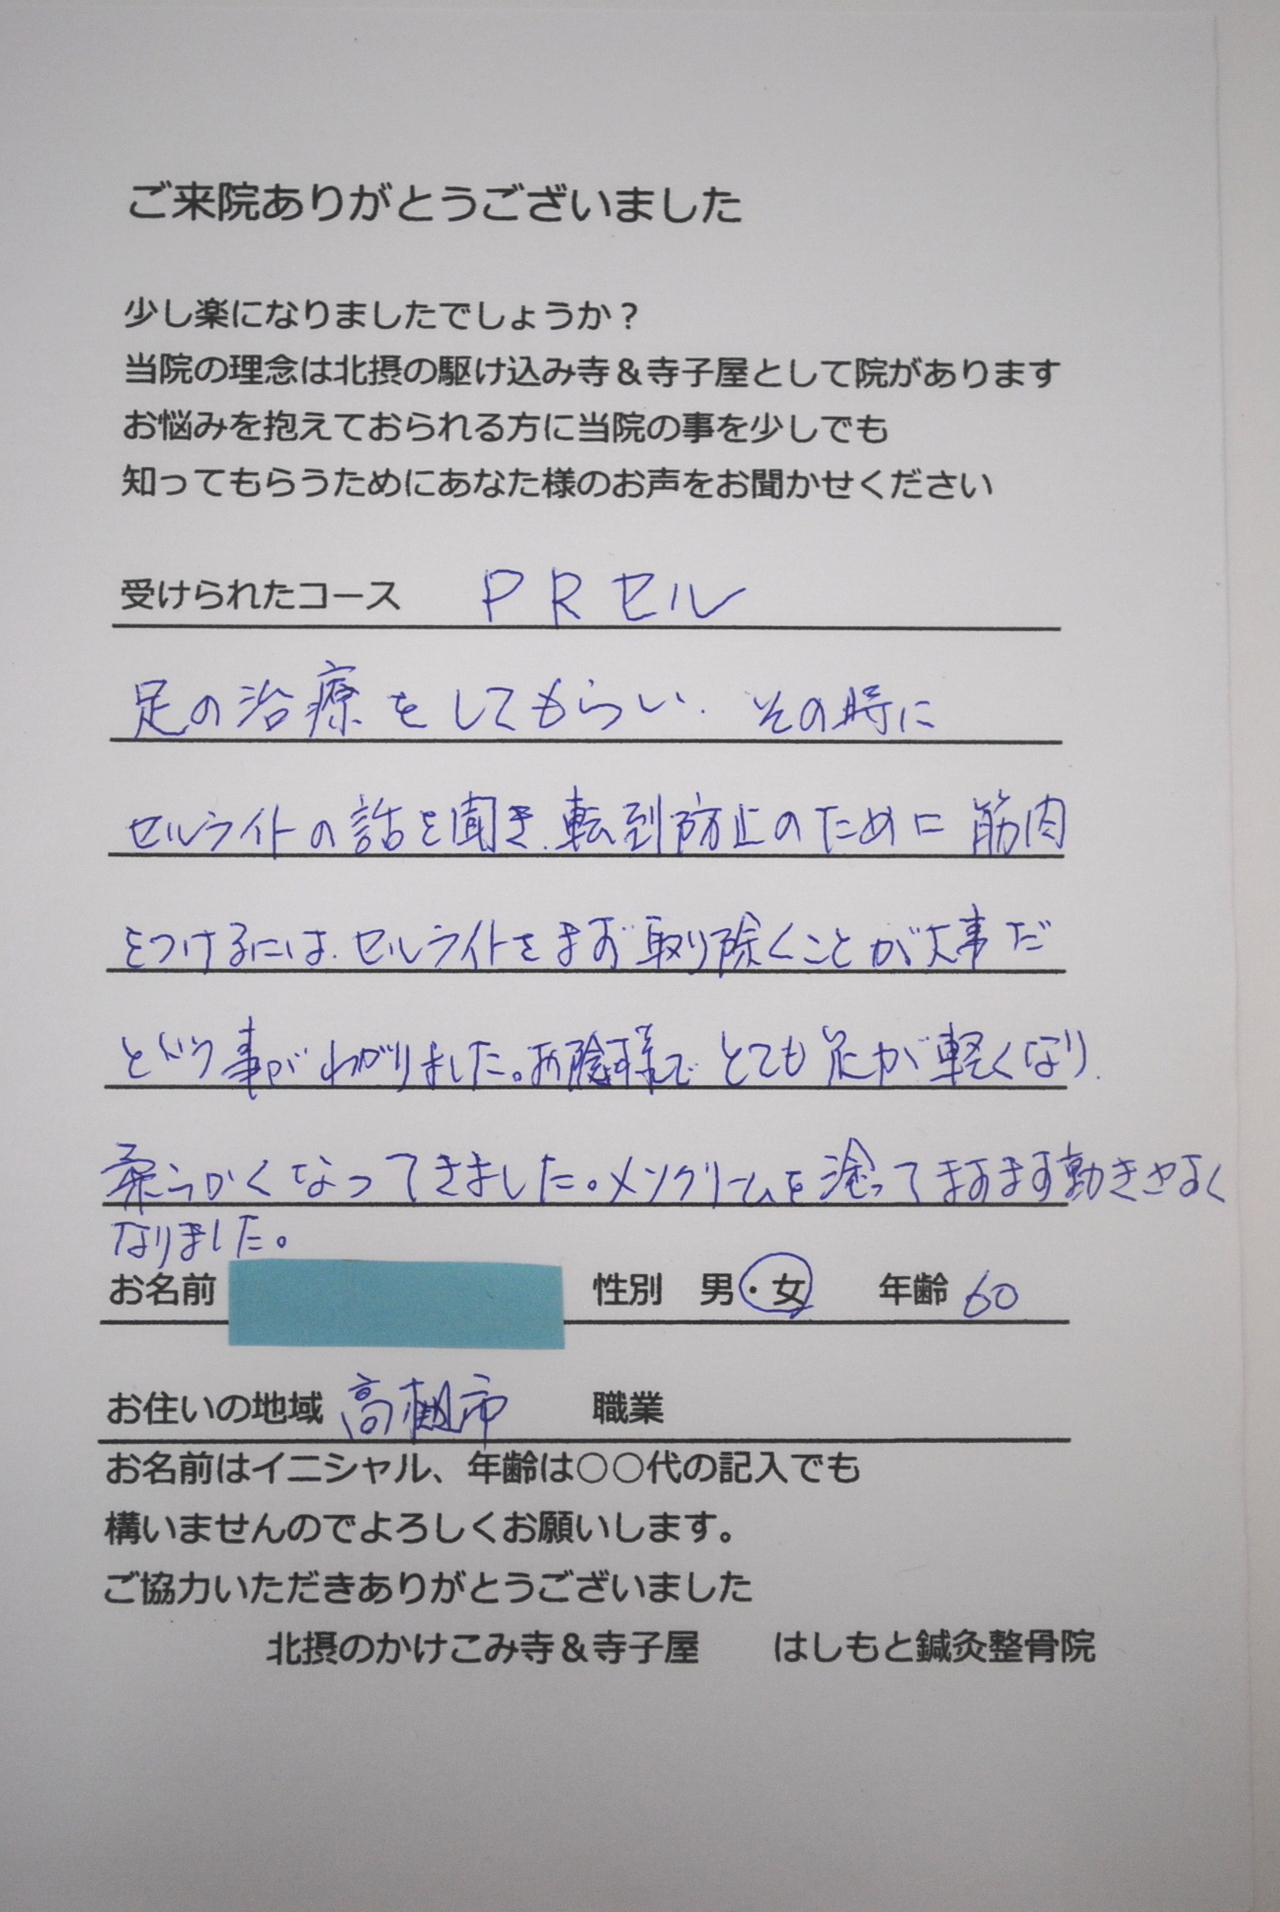 ご来院ありがとうございました
少し楽になりましたでしょうか？
当院の理念は北摂の駆け込み寺＆寺子屋として院があります
お悩みを抱えておられる方に当院の事を少しでも
知ってもらうためにあなた様のお声をお聞かせください
受けられたコース PRセル
足の治療をしてもらい、その時に
セルライトの話を聞き、転到防止のために筋肉
をつけるには、セルライトをまず取り除くことが大事だ
という事がわかりました。お陰様でとても足が軽くなり、
柔らかくなってきました。メンクリームを塗ってますます動きやすく
なりました。
お名前 性別 男・女 年齢 60
お住いの地域 高槻市 職業
お名前はイニシャル、年齢は○○代の記入でも
構いませんのでよろしくお願いします。
ご協力いただきありがとうございました
北摂のかけこみ寺＆寺子屋 はしもと鍼灸整骨院